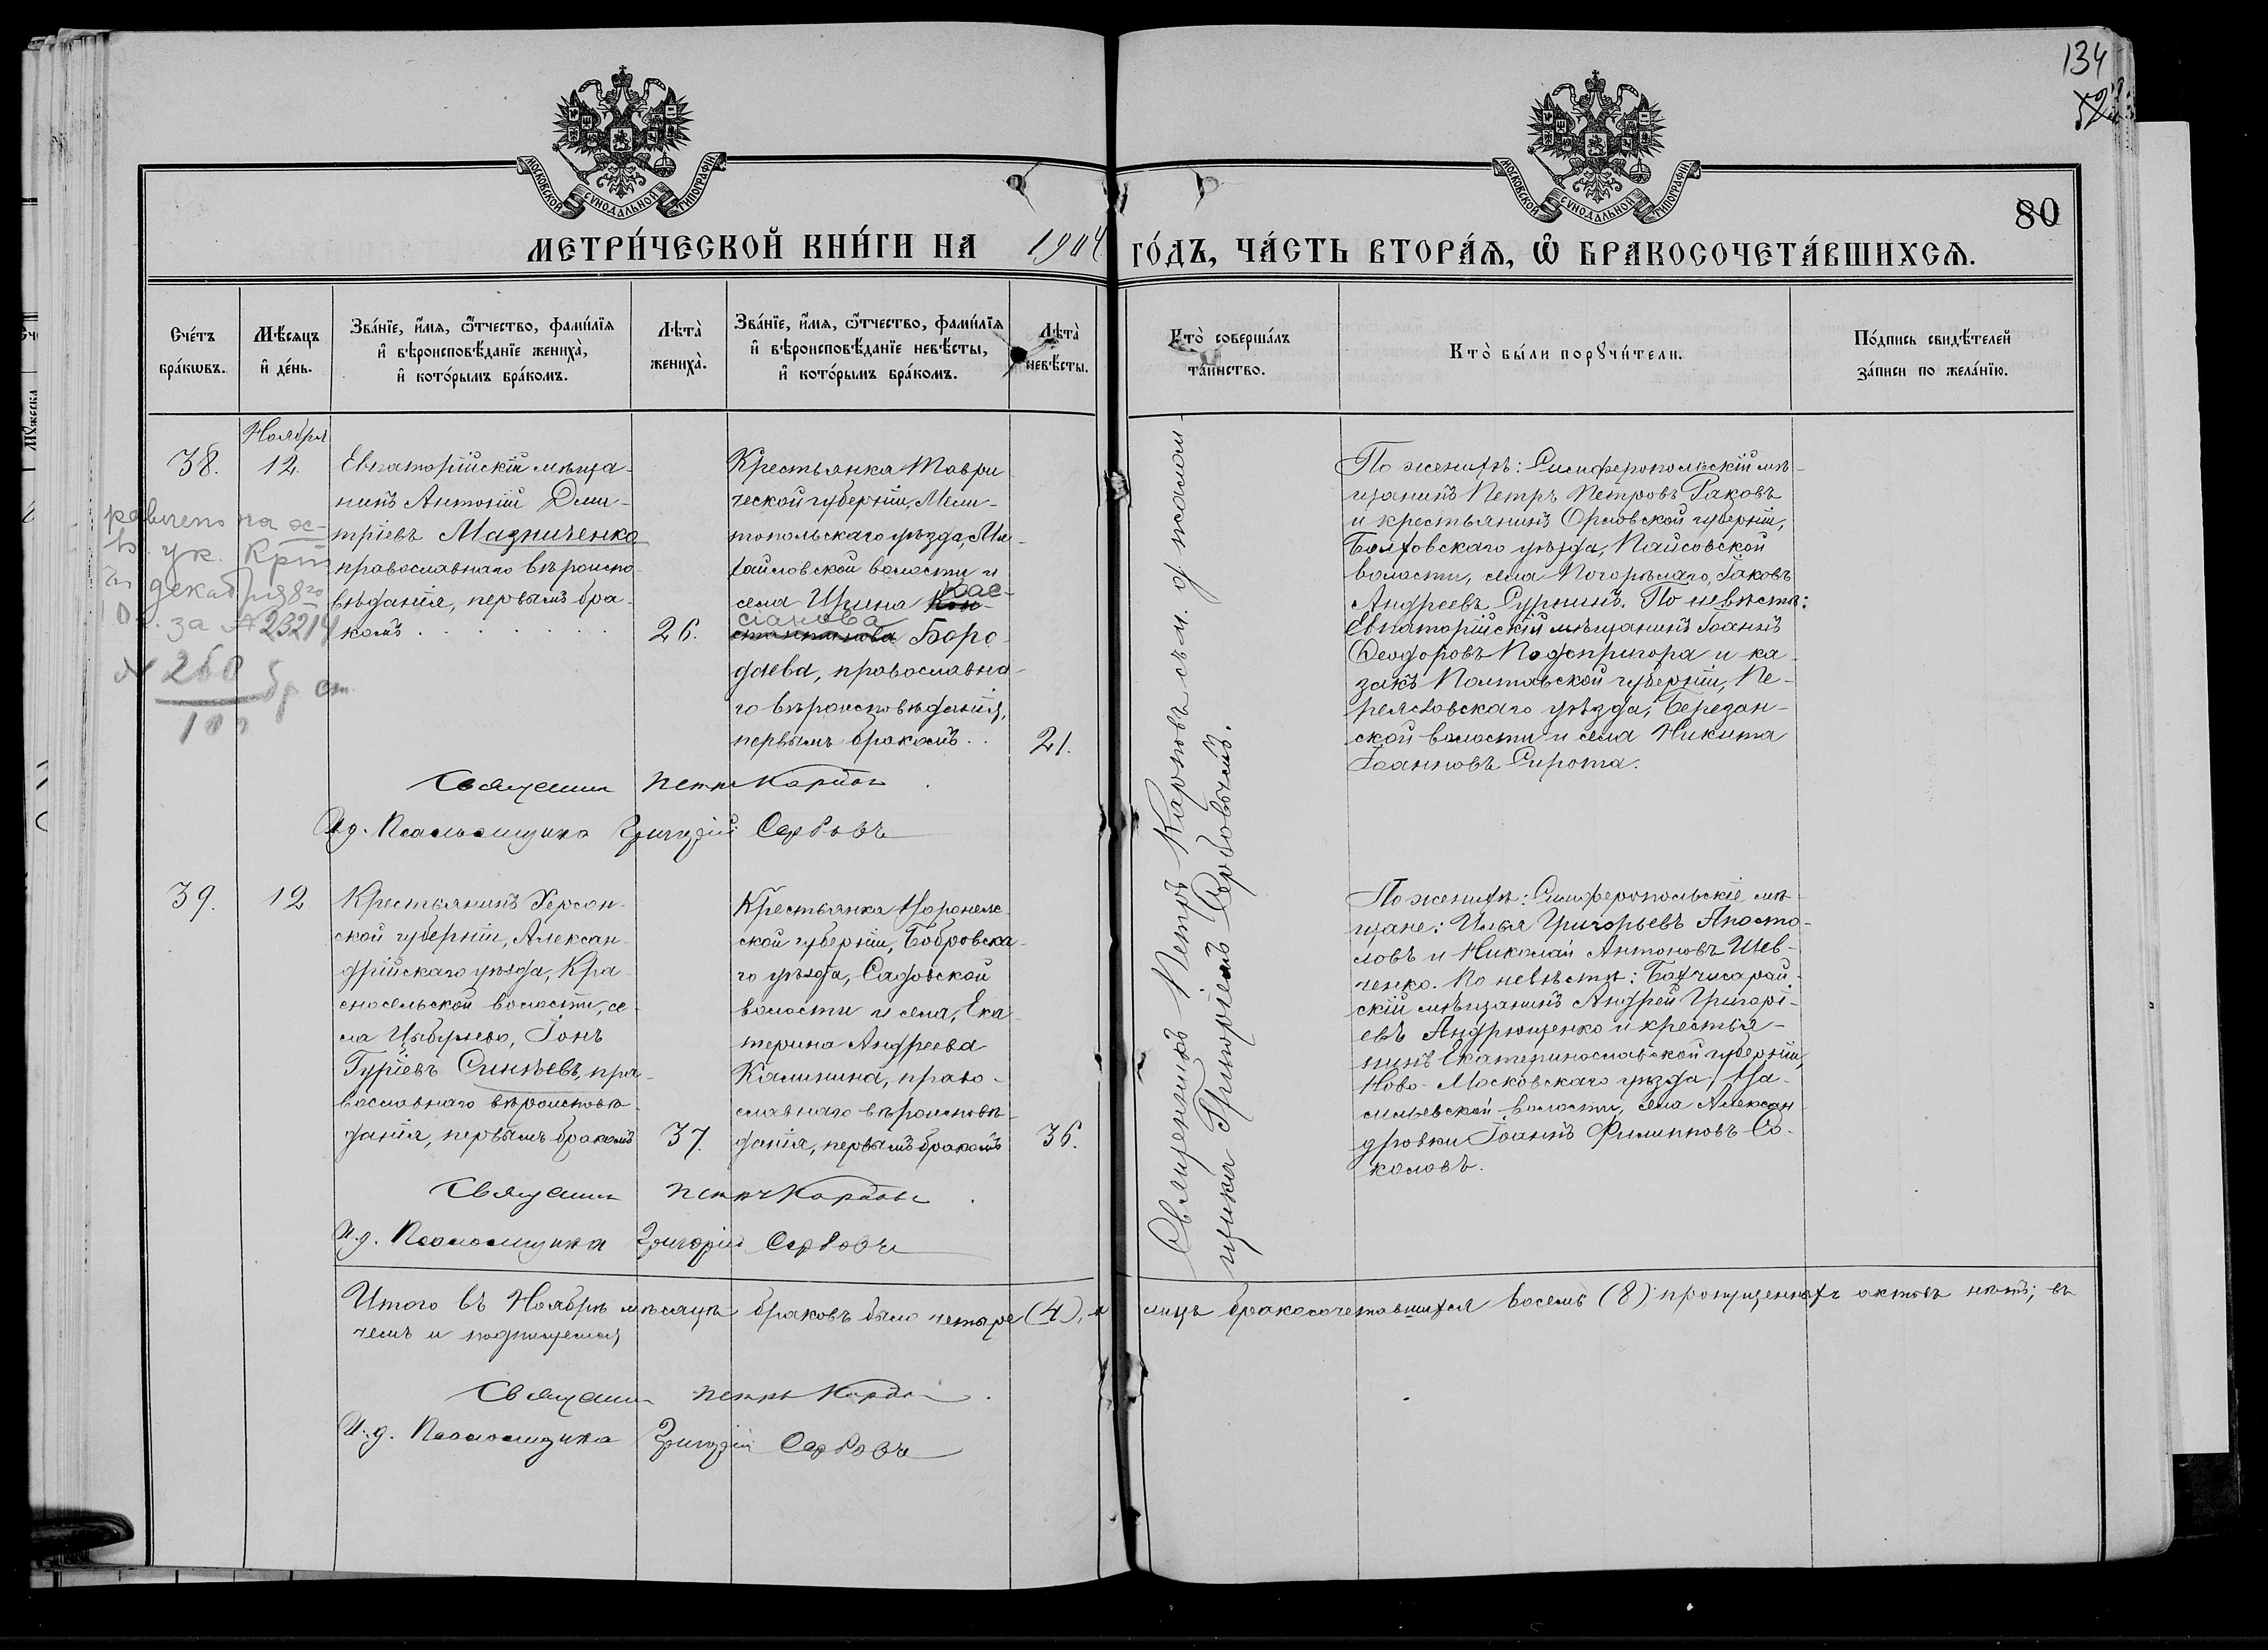 134
80
МОСКОВСКОЙ СѴНОДАЛЬНОЙ ТИПОГРАФІИ
МОСКОВСКОЙ СѴНОДАЛЬНОЙ ТИПОГРАФІИ
МЕТРИ́ЧЕСКОЙ КНИ́ГИ НА 1904 ГО́ДЪ, ЧА́СТЬ ВТОРА́Ѧ, Ѽ БРАКОСОЧЕТА́ВШИХСѦ.
Сче́тъ
бра́кѡвъ.
Мѣ́сяцъ
и҆ де́нь.
Зва́нїе, и҆́мѧ, ѻ҆́тчество, фамѝлїѧ
и҆ вѣроисповѣ́данїе жениха̀,
и҆ кото́рымъ бра́комъ.
Лѣта̀
жениха̀.
Зва́нїе, и҆́мѧ, ѻ҆́тчество, фамѝлїѧ
и҆ вѣроисповѣ́данїе невѣ́сты,
и҆ кото́рымъ бра́комъ.
Лѣта̀
невѣ́сты.
Кто̀ соверша́лъ
та́инство.
Кто̀ бы́ли порꙋчи́тели.
По́дпись свидѣ́телей
за́писи по жела́нїю.
Ноября
38.
12.
Евпаторійскій мѣща-
нинъ Антоній Дми-
тріевъ Мазниченко
православнаго вѣроиспо-
вѣданія, первымъ бра-
комъ
26.
Крестьянка Таври
ческой губерніи, Мели-
топольскаго уѣзда, Ми-
хайловской волости и
села Ирина Кон- Кас-
стантинова сіанова Боро-
даева, православна-
го вѣроисповѣданія,
первымъ бракомъ . .
21.
на
ук.
декабря 8го
за № 23214
260
Священникъ Петръ Карповъ съ и. д. псалом-
щика Григоріемъ Сербовымъ.
По женихѣ: Симферопольскій мѣ-
щанинъ Петръ Петровъ Раковъ
и крестьянинъ Орловской губерніи,
Болховскаго уѣзда, Пайсовской
волости, села Погорѣлаго, Іаковъ
Андреевъ Сурнинъ. По невѣстѣ:
Евпаторійскій мѣщанинъ Іоаннъ
Ѳеодоровъ Подопригора и ка-
закъ Полтавской губерніи, Пе-
реяславскаго уѣзда, Березан-
ской волости и села Никита
Іоанновъ Сирота.
Священникъ Петръ Карповъ
И.д. Псаломщика Григорій Сербовъ
39.
12.
Крестьянинъ Херсон-
ской губерніи, Алексан-
дрійскаго уѣзда, Кра-
сносельской волости, се-
ла Цыбулево, Іонъ
Гуріевъ Синѣевъ, пра-
вославнаго вѣроисповѣ-
данія, первымъ бракомъ
37.
Крестьянка Воронеж-
ской губерніи, Бобровска-
го уѣзда, Садовской
волости и села, Ека-
терина Андреева
Калинина, право-
славнаго вѣроисповѣ-
данія, первымъ бракомъ
36.
По женихѣ: Симферопольскіе мѣ-
щане: Илья Григорьевъ Апосто-
ловъ и Николай Антоновъ Шев-
ченко. По невѣстѣ: Бахчисарай-
скій мѣщанинъ Андрей Григорі-
евъ Андрющенко и крестья-
нинъ Екатеринославской губерніи,
Ново-Московскаго уѣзда,
волости, села Алексан-
дровки Іоаннъ Филипповъ Со-
коловъ.
Священникъ Петръ Карповъ
И.д. Псаломщика Григорій Сербовъ
Итого въ Ноябрѣ мѣсяцѣ браковъ было четыре (4), а лицъ бракосочетавшихся восемь (8); пропущенныхъ актовъ нѣтъ; въ
чемъ и подпишемся,
Священникъ Петръ Карповъ
И.д. Псаломщика Григорій Сербовъ